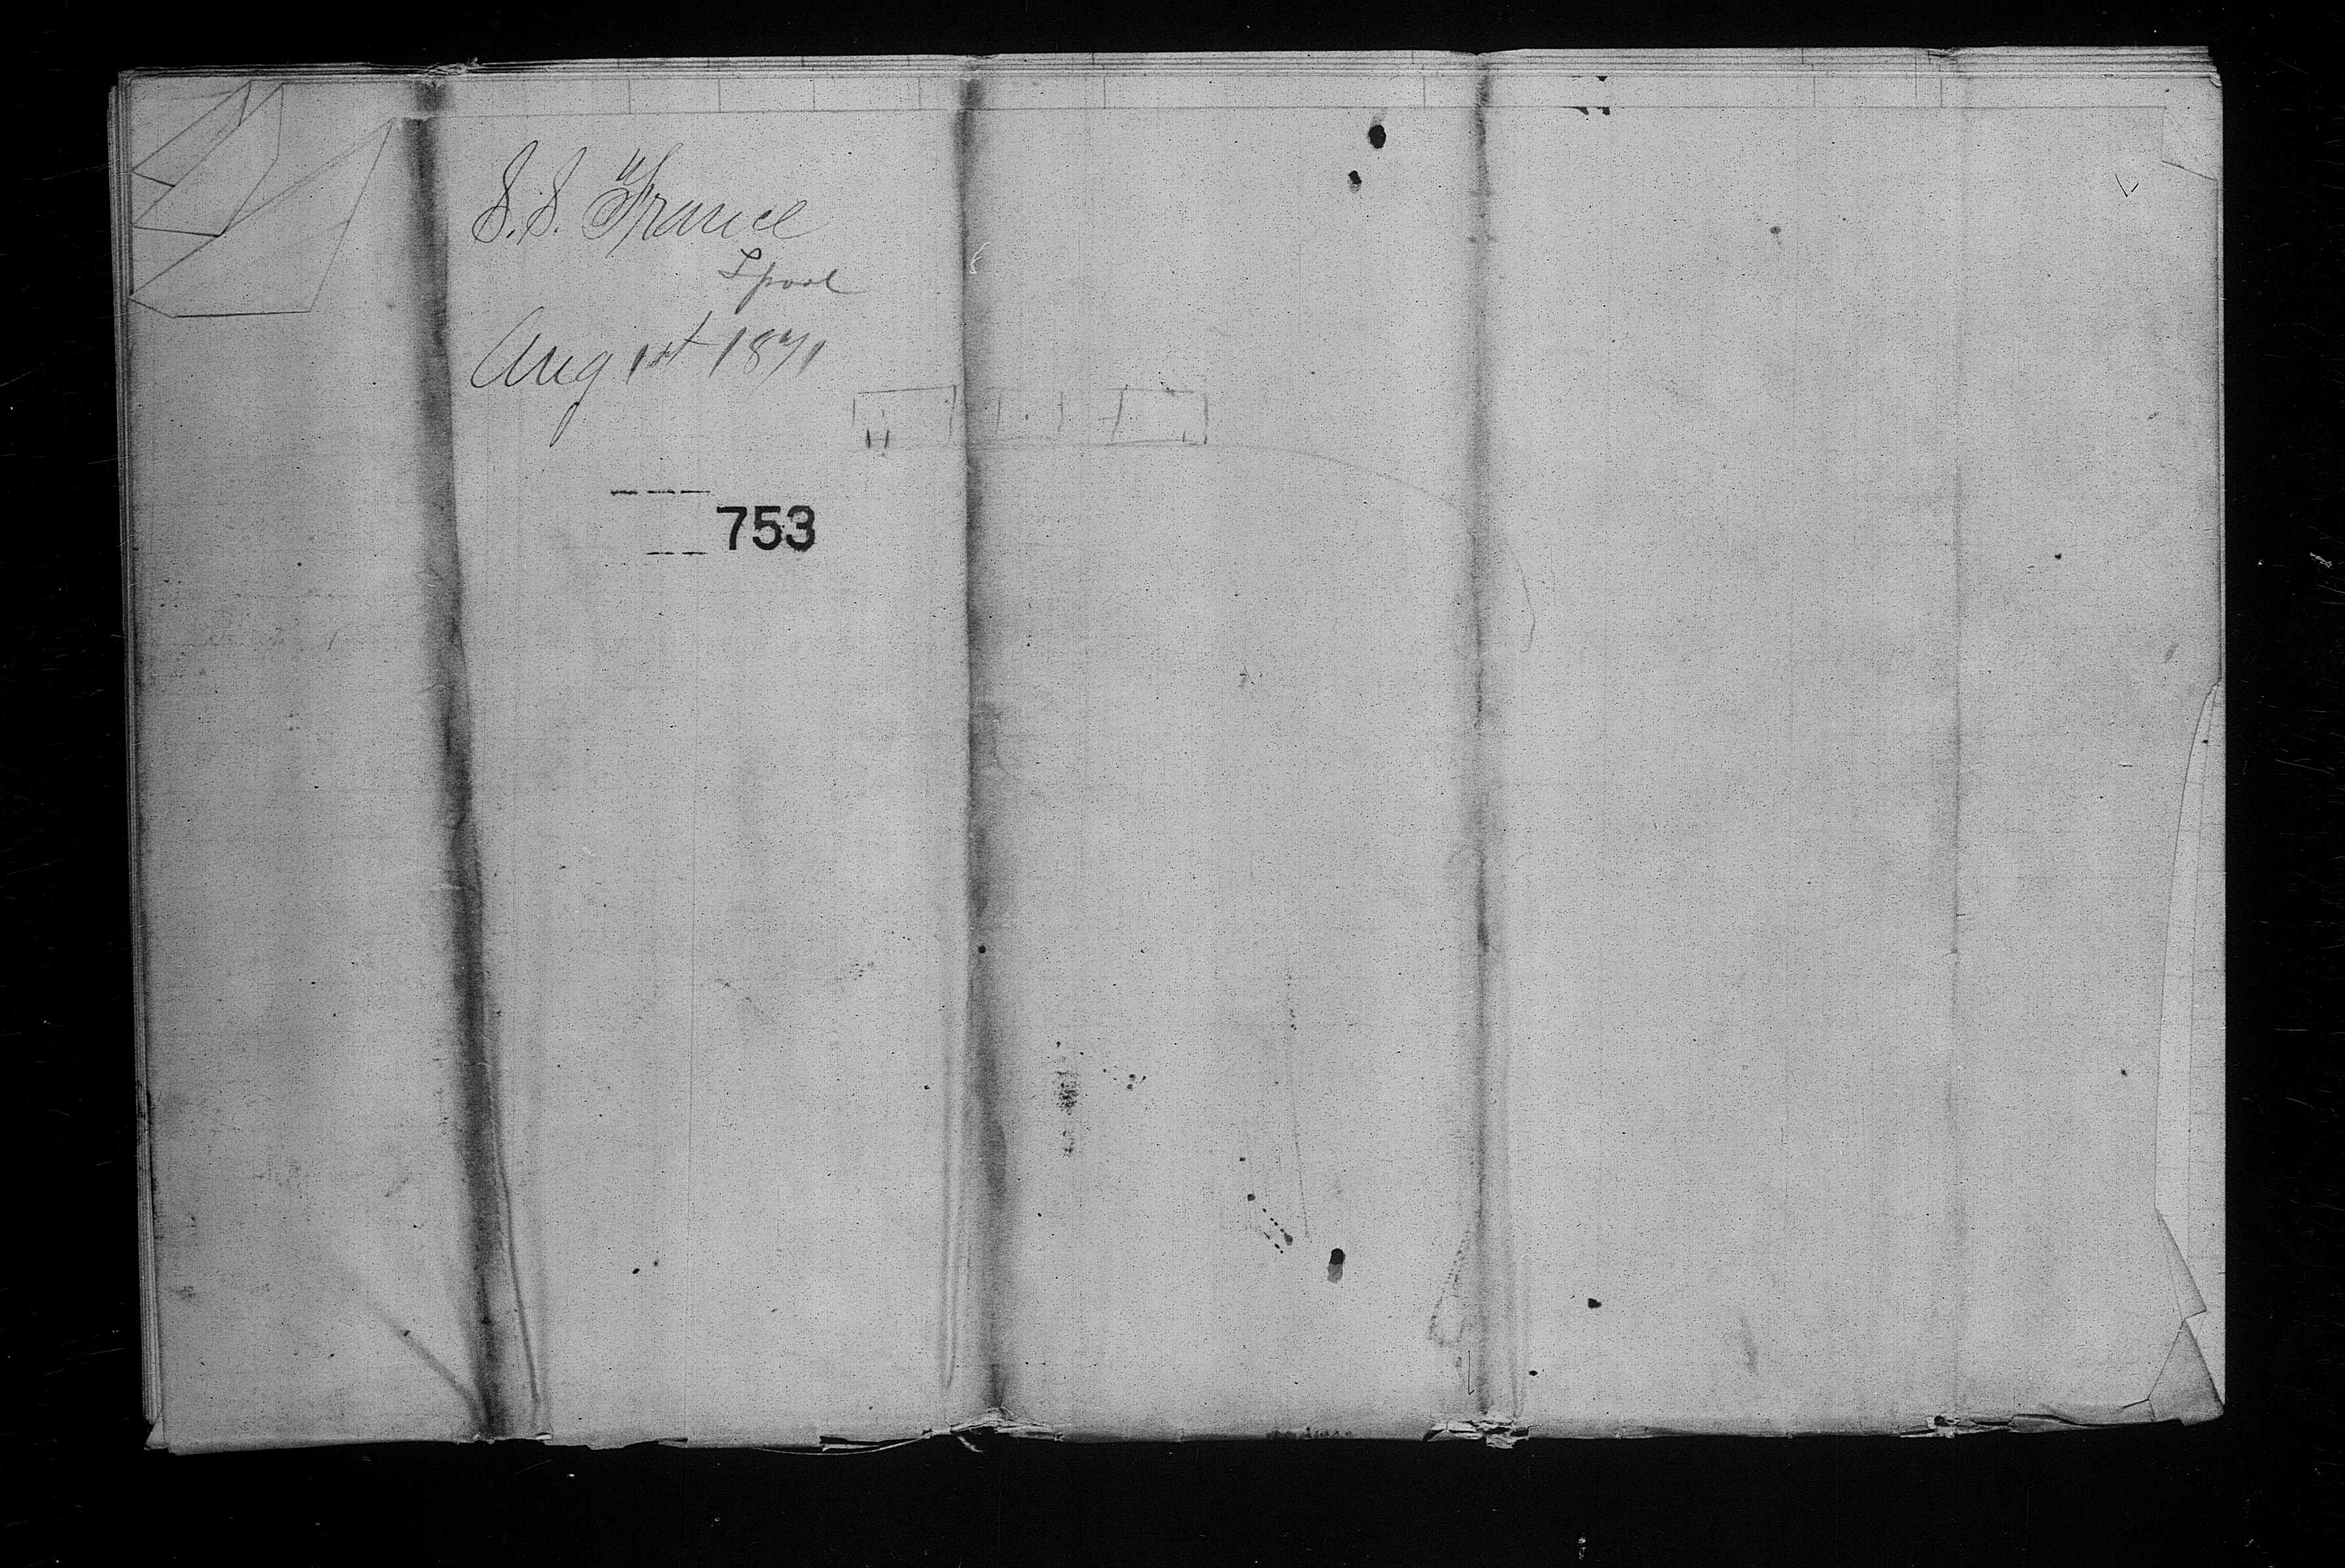 S.S. "France
Lpool
Aug 1st 1871
753